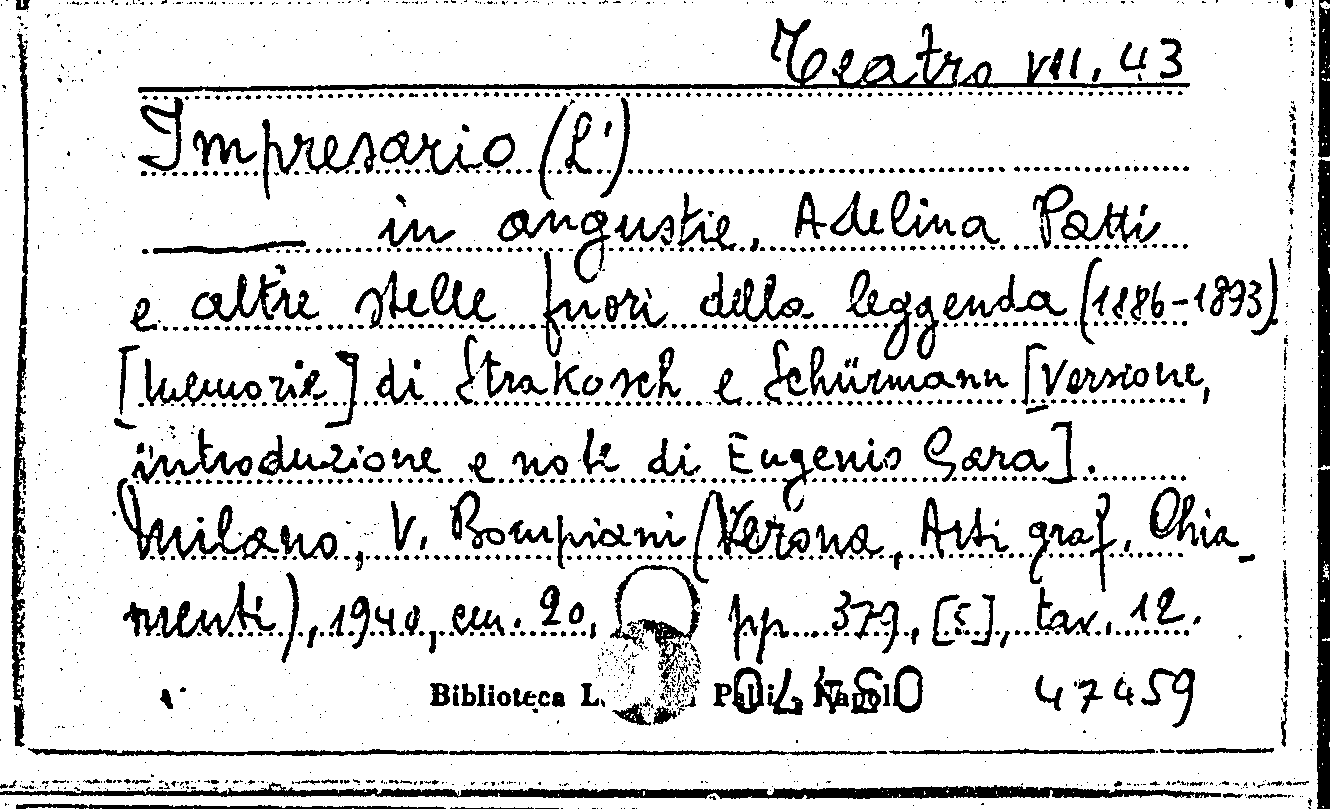 Teatro VII. 43
Impresario (L')
——— in angustie. Adelina Patti
e altre stelle fuori della leggenda (1886-1893)
[Memorie] di Strakosch e Schürmann [Versione,
introduzione e note di Eugenio Gara].
Milano, V. Bompiani (Verona, Arti graf. Chia-
menti), 1940, cm. 20, pp. 379, [5], tav. 12.
Biblioteca L. 47459